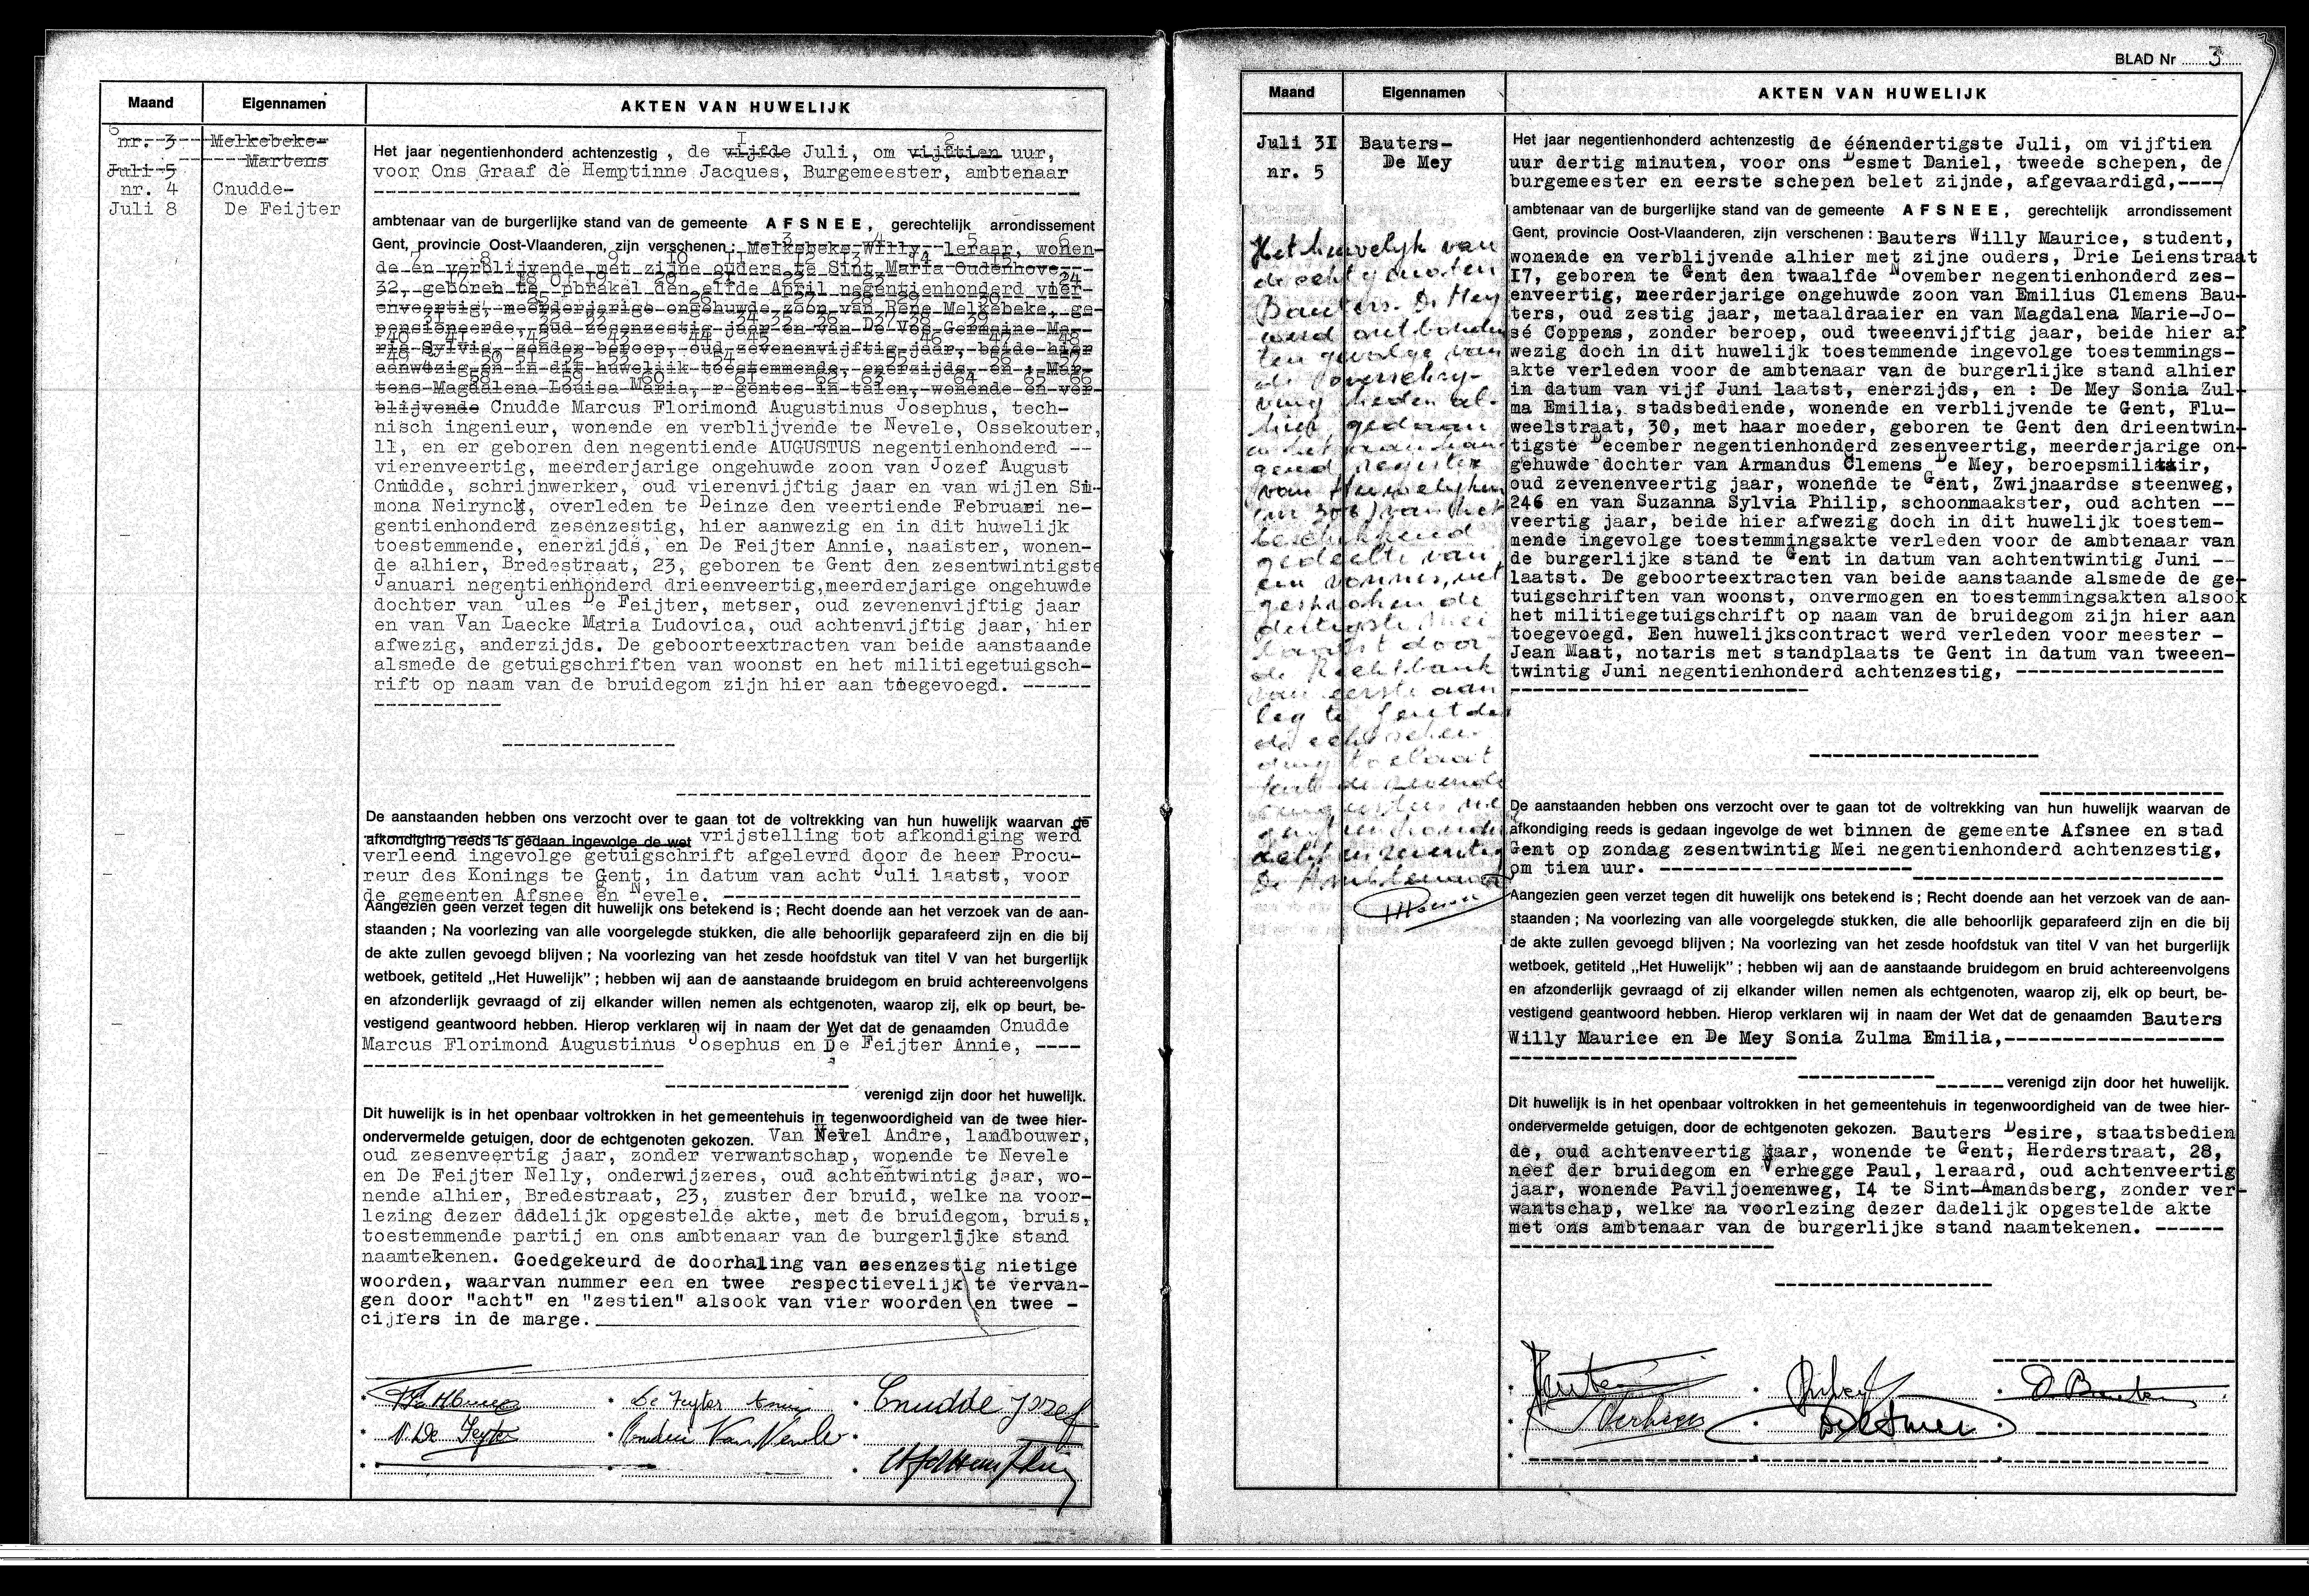 Maand
Eigennamen
AKTEN VAN HUWELIJK
nr. 3
Melkebeke-
Martens
Juli 5
nr. 4
Cnudde-
Juli 8
De Feijter
I 2
Het jaar negentienhonderd achtenzestig , de vijfde Juli, om vijftien uur,
voor Ons Graaf de Hemptinne Jacques, Burgemeester, ambtenaar
ambtenaar van de burgerlijke stand van de gemeente AFSNEE, gerechtelijk arrondissement
Gent, provincie Oost-Vlaanderen, zijn verschenen : Melkebeke Willy leraar, wonen-
de en verblijvende met zijne ouders te Sint Maria Oudenhove
32, geboren te Opbrakel den elfde April negentienhonderd vier-
enveertig, meerderjarige ongehuwde zoon van Rene Melkebeke, ge-
pensioneerde, oud zesenzestig jaar en van De Vos Germaine Ma-
ria Sylvia, zonder beroep, oud zevenenvijftig jaar, beide hier
aanwezig en in dit huwelijk toestemmende, enerzijds, en : Mar-
tens Magdalena Louisa Maria, r gentes in talen, wonende en ver-
blijvende Cnudde Marcus Florimond Augustinus Josephus, tech-
nisch ingenieur, wonende en verblijvende te Nevele, Ossekouter,
11, en er geboren den negentiende AUGUSTUS negentienhonderd --
vierenveertig, meerderjarige ongehuwde zoon van Jozef August
Cnudde, schrijnwerker, oud vierenvijftig jaar en van wijlen Si-
mona Neirynck, overleden te Deinze den veertiende Februari ne-
gentienhonderd zesenzestig, hier aanwezig en in dit huwelijk
toestemmende, enerzijds, en De Feijter Annie, naaister, wonen-
de alhier, Bredestraat, 23, geboren te Gent den zesentwintigste
Januari negentienhonderd drieenveertig,meerderjarige ongehuwde
dochter van Jules De Feijter, metser, oud zevenenvijftig jaar
en van Van Laecke Maria Ludovica, oud achtenvijftig jaar, hier
afwezig, anderzijds. De geboorteextracten van beide aanstaande
alsmede de getuigschriften van woonst en het militiegetuigsch-
rift op naam van de bruidegom zijn hier aan toegevoegd. ------
De aanstaanden hebben ons verzocht over te gaan tot de voltrekking van hun huwelijk waarvan de
afkondiging reeds is gedaan ingevolge de wet vrijstelling tot afkondiging werd
verleend ingevolge getuigschrift afgelevrd door de heer Procu-
reur des Konings te Gent, in datum van acht Juli laatst, voor
de gemeenten Afsnee en Nevele. ------
Aangezien geen verzet tegen dit huwelijk ons betekend is ; Recht doende aan het verzoek van de aan-
staanden ; Na voorlezing van alle voorgelegde stukken, die alle behoorlijk geparafeerd zijn en die bij
de akte zullen gevoegd blijven ; Na voorlezing van het zesde hoofdstuk van titel V van het burgerlijk
wetboek, getiteld „Het Huwelijk” ; hebben wij aan de aanstaande bruidegom en bruid achtereenvolgens
en afzonderlijk gevraagd of zij elkander willen nemen als echtgenoten, waarop zij, elk op beurt, be-
vestigend geantwoord hebben. Hierop verklaren wij in naam der Wet dat de genaamden Cnudde
Marcus Florimond Augustinus Josephus en De Feijter Annie, ----
verenigd zijn door het huwelijk.
Dit huwelijk is in het openbaar voltrokken in het gemeentehuis in tegenwoordigheid van de twee hier-
ondervermelde getuigen, door de echtgenoten gekozen. Van Nevel Andre, landbouwer,
oud zesenveertig jaar, zonder verwantschap, wonende te Nevele
en De Feijter Nelly, onderwijzeres, oud achtentwintig jaar, wo-
nende alhier, Bredestraat, 23, zuster der bruid, welke na voor-
lezing dezer dadelijk opgestelde akte, met de bruidegom, bruis,
toestemmende partij en ons ambtenaar van de burgerlijke stand
naamtekenen. Goedgekeurd de doorhaling van zesenzestig nietige
woorden, waarvan nummer een en twee respectievelijk te vervan-
gen door "acht" en "zestien" alsook van vier woorden en twee -
cijfers in de marge.
De Feyter Annie
Cnudde Jozef
N. De Feyter
BLAD Nr 3
Maand
Eigennamen
AKTEN VAN HUWELIJK
Juli 3I
Bauters-
De Mey
nr. 5
Het huwelijk van
de echtgenoten
Bauters-De Mey
werd ontbonden
ten gevolge van
de overschrij-
ving heden al-
hier gedaan
in het aanhan-
gend register
van Huwelijken
van het
beschikkend
gedeelte van
een vonnis, uit
gesproken de
dertigste mei
laatst door
de Rechtbank
van eerste aan
leg te Gent dat
de echtschei-
ding toelaat
Het jaar negentienhonderd achtenzestig de éénendertigste Juli, om vijftien
uur dertig minuten, voor ons Desmet Daniel, tweede schepen, de
burgemeester en eerste schepen belet zijnde, afgevaardigd,----
ambtenaar van de burgerlijke stand van de gemeente AFSNEE, gerechtelijk arrondissement
Gent, provincie Oost-Vlaanderen, zijn verschenen : Bauters Willy Maurice, student,
wonende en verblijvende alhier met zijne ouders, Drie Leienstraat
I7, geboren te Gent den twaalfde November negentienhonderd zes-
enveertig, meerderjarige ongehuwde zoon van Emilius Clemens Bau-
ters, oud zestig jaar, metaaldraaier en van Magdalena Marie-Jo-
sé Coppens, zonder beroep, oud tweeenvijftig jaar, beide hier af
wezig doch in dit huwelijk toestemmende ingevolge toestemmings-
akte verleden voor de ambtenaar van de burgerlijke stand alhier
in datum van vijf Juni laatst, enerzijds, en : De Mey Sonia Zul-
ma Emilia, stadsbediende, wonende en verblijvende te Gent, Flu-
weelstraat, 30, met haar moeder, geboren te Gent den drieentwin-
tigste December negentienhonderd zesenveertig, meerderjarige on-
gehuwde dochter van Armandus Clemens De Mey, beroepsmilitair,
oud zevenenveertig jaar, wonende te Gent, Zwijnaardse steenweg,
246 en van Suzanna Sylvia Philip, schoonmaakster, oud achten --
veertig jaar, beide hier afwezig doch in dit huwelijk toestem-
mende ingevolge toestemmingsakte verleden voor de ambtenaar van
de burgerlijke stand te Gent in datum van achtentwintig Juni --
laatst. De geboorteextracten van beide aanstaande alsmede de ge-
tuigschriften van woonst, onvermogen en toestemmingsakten alsook
het militiegetuigschrift op naam van de bruidegom zijn hier aan
toegevoegd. Een huwelijkscontract werd verleden voor meester -
Jean Maat, notaris met standplaats te Gent in datum van tweeen-
twintig Juni negentienhonderd achtenzestig, ------
De aanstaanden hebben ons verzocht over te gaan tot de voltrekking van hun huwelijk waarvan de
afkondiging reeds is gedaan ingevolge de wet binnen de gemeente Afsnee en stad
Gent op zondag zesentwintig Mei negentienhonderd achtenzestig,
om tien uur. ------
Aangezien geen verzet tegen dit huwelijk ons betekend is ; Recht doende aan het verzoek van de aan-
staanden ; Na voorlezing van alle voorgelegde stukken, die alle behoorlijk geparafeerd zijn en die bij
de akte zullen gevoegd blijven ; Na voorlezing van het zesde hoofdstuk van titel V van het burgerlijk
wetboek, getiteld „Het Huwelijk” ; hebben wij aan de aanstaande bruidegom en bruid achtereenvolgens
en afzonderlijk gevraagd of zij elkander willen nemen als echtgenoten, waarop zij, elk op beurt, be-
vestigend geantwoord hebben. Hierop verklaren wij in naam der Wet dat de genaamden Bauters
Willy Maurice en De Mey Sonia Zulma Emilia,------
verenigd zijn door het huwelijk.
Dit huwelijk is in het openbaar voltrokken in het gemeentehuis in tegenwoordigheid van de twee hier-
ondervermelde getuigen, door de echtgenoten gekozen. Bauters Desire, staatsbedien
de, oud achtenveertig jaar, wonende te Gent, Herderstraat, 28,
neef der bruidegom en Verhegge Paul, leraard, oud achtenveertig
jaar, wonende Paviljoenenweg, I4 te Sint-Amandsberg, zonder ver-
wantschap, welke na voorlezing dezer dadelijk opgestelde akte
met ons ambtenaar van de burgerlijke stand naamtekenen. ------